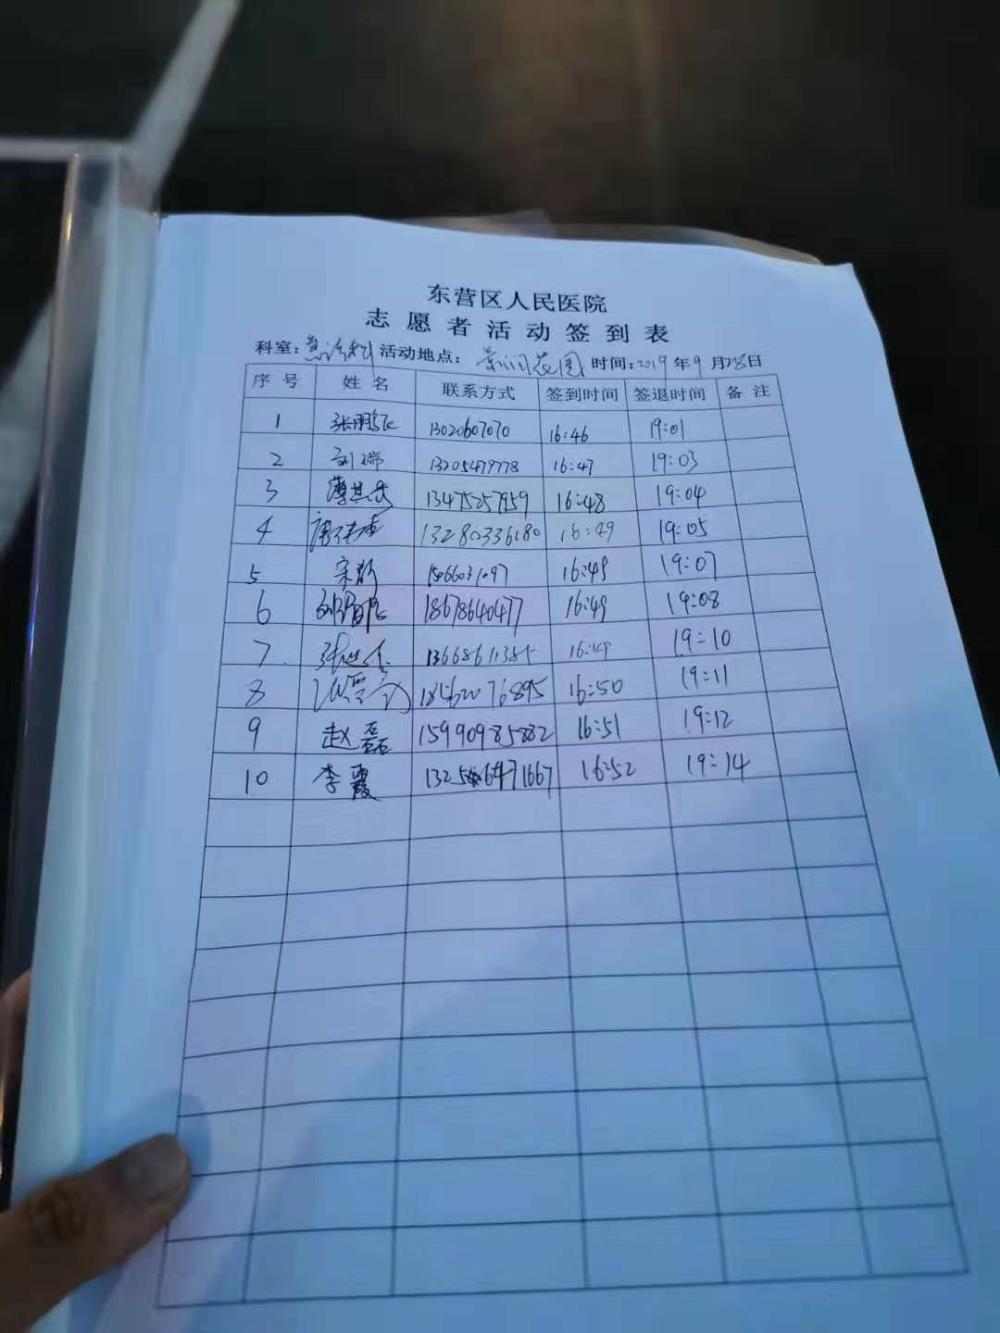 东营区人民医院
志愿者活动签到表
科室：急诊科 活动地点： 花园 时间：2019年9月28日
序号 姓名 联系方式 签到时间 签退时间 备注
1 张鹏飞 13020607070 16:46 19:01
2 刘瑞 13205479778 16:47 19:03
3 13475257959 16:48 19:04
4 13280336180 16:49 19:05
5 宋 16:49 19:07
6 18678640477 16:49 19:08
7 张 16:49 19:10
8 18562076895 16:50 19:11
9 赵磊 15990985882 16:51 19:12
10 李霞 16:52 19:14